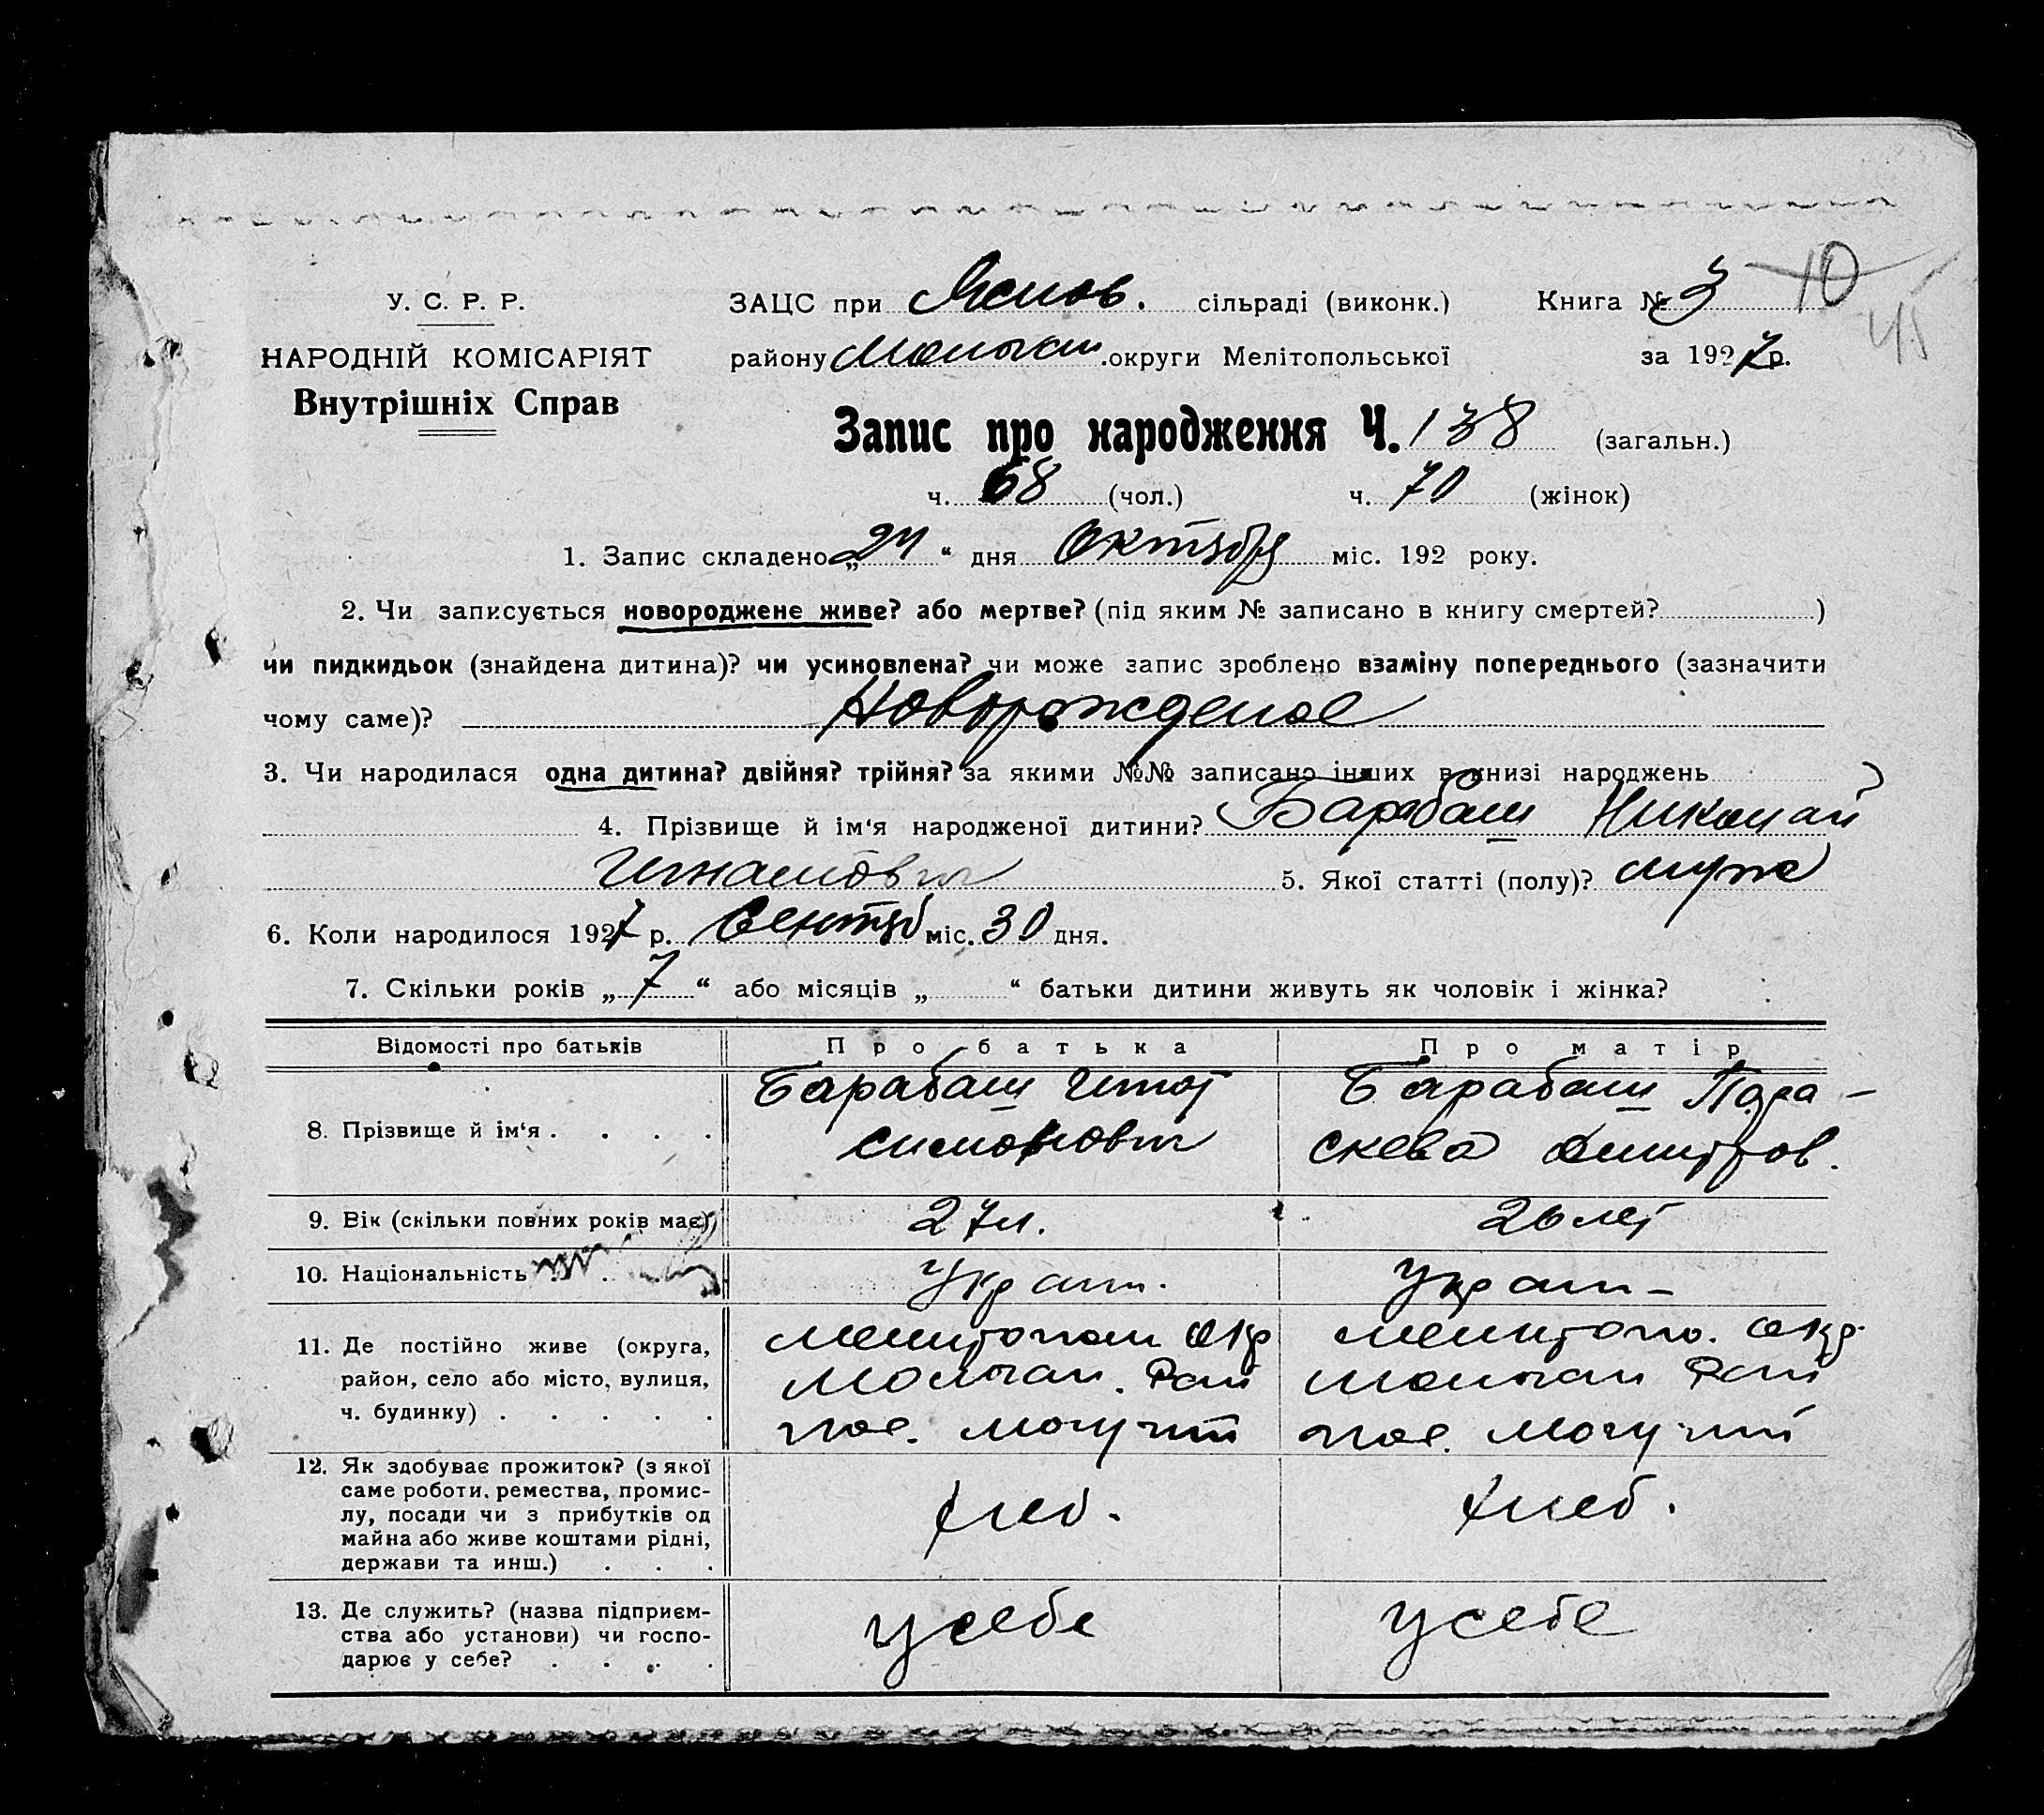 У. С. Р. Р.
НАРОДНІЙ КОМІСАРІЯТ
Внутрішніх Справ
ЗАЦС при Яснов. сільраді (виконк.) Книга № 3 10
45
району Молочан. округи Мелітопольської за 1927 р.
Запис про народження Ч. 138 (загальн.)
ч. 68 (чол.) ч. 70 (жінок)
1. Запис складено „24“ дня Октября міс. 192 року.
2. Чи записується новороджене живе? або мертве? (під яким № записано в книгу смертей? )
чи пидкидьок (знайдена дитина)? чи усиновлена? чи може запис зроблено взаміну попереднього (зазначити
чому саме)? Новорожденое
3. Чи народилася одна дитина? двійня? трійня? за якими №№ записано інших в книзі народжень
4. Прізвище й ім‘я народженої дитини? Барабаш Николай
Игнатович 5. Якої статті (полу)? муж
6. Коли народилося 1927 р. Сентяб міс. 30 дня.
7. Скільки років „7“ або місяців „ “ батьки дитини живуть як чоловік і жінка?
Відомості про батьків Про батька Про матір
8. Прізвище й ім‘я . . . . Барабаш Игнат Барабаш Пара-
Симонович скева Дмитров.
9. Вік (скільки повних років має) 27 л. 26 лет
10. Національність Украин. Украин-
11. Де постійно живе (округа, район, село або місто, вулиця, ч. будинку) . . . . .
Мелитопол Окр Мелитопо. Окр.
Молочан. Рай Молочан Рай
пос. Могучий пос. Могучий
12. Як здобуває прожиток? (з якої саме роботи, ремества, промис-
лу, посади чи з прибутків од
майна або живе коштами рідні,
держави та инш.) . . .
хлеб. хлеб.
13. Де служить? (назва підприєм-
ства або установи) чи госпо-
дарює у себе? . . . .
у себе у себе